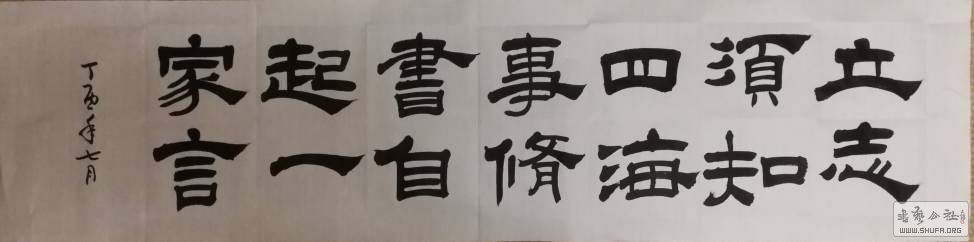 立志
須知
四海
事脩
書自
起一
家言
丁酉年七月
WWW.SHUFA.ORG